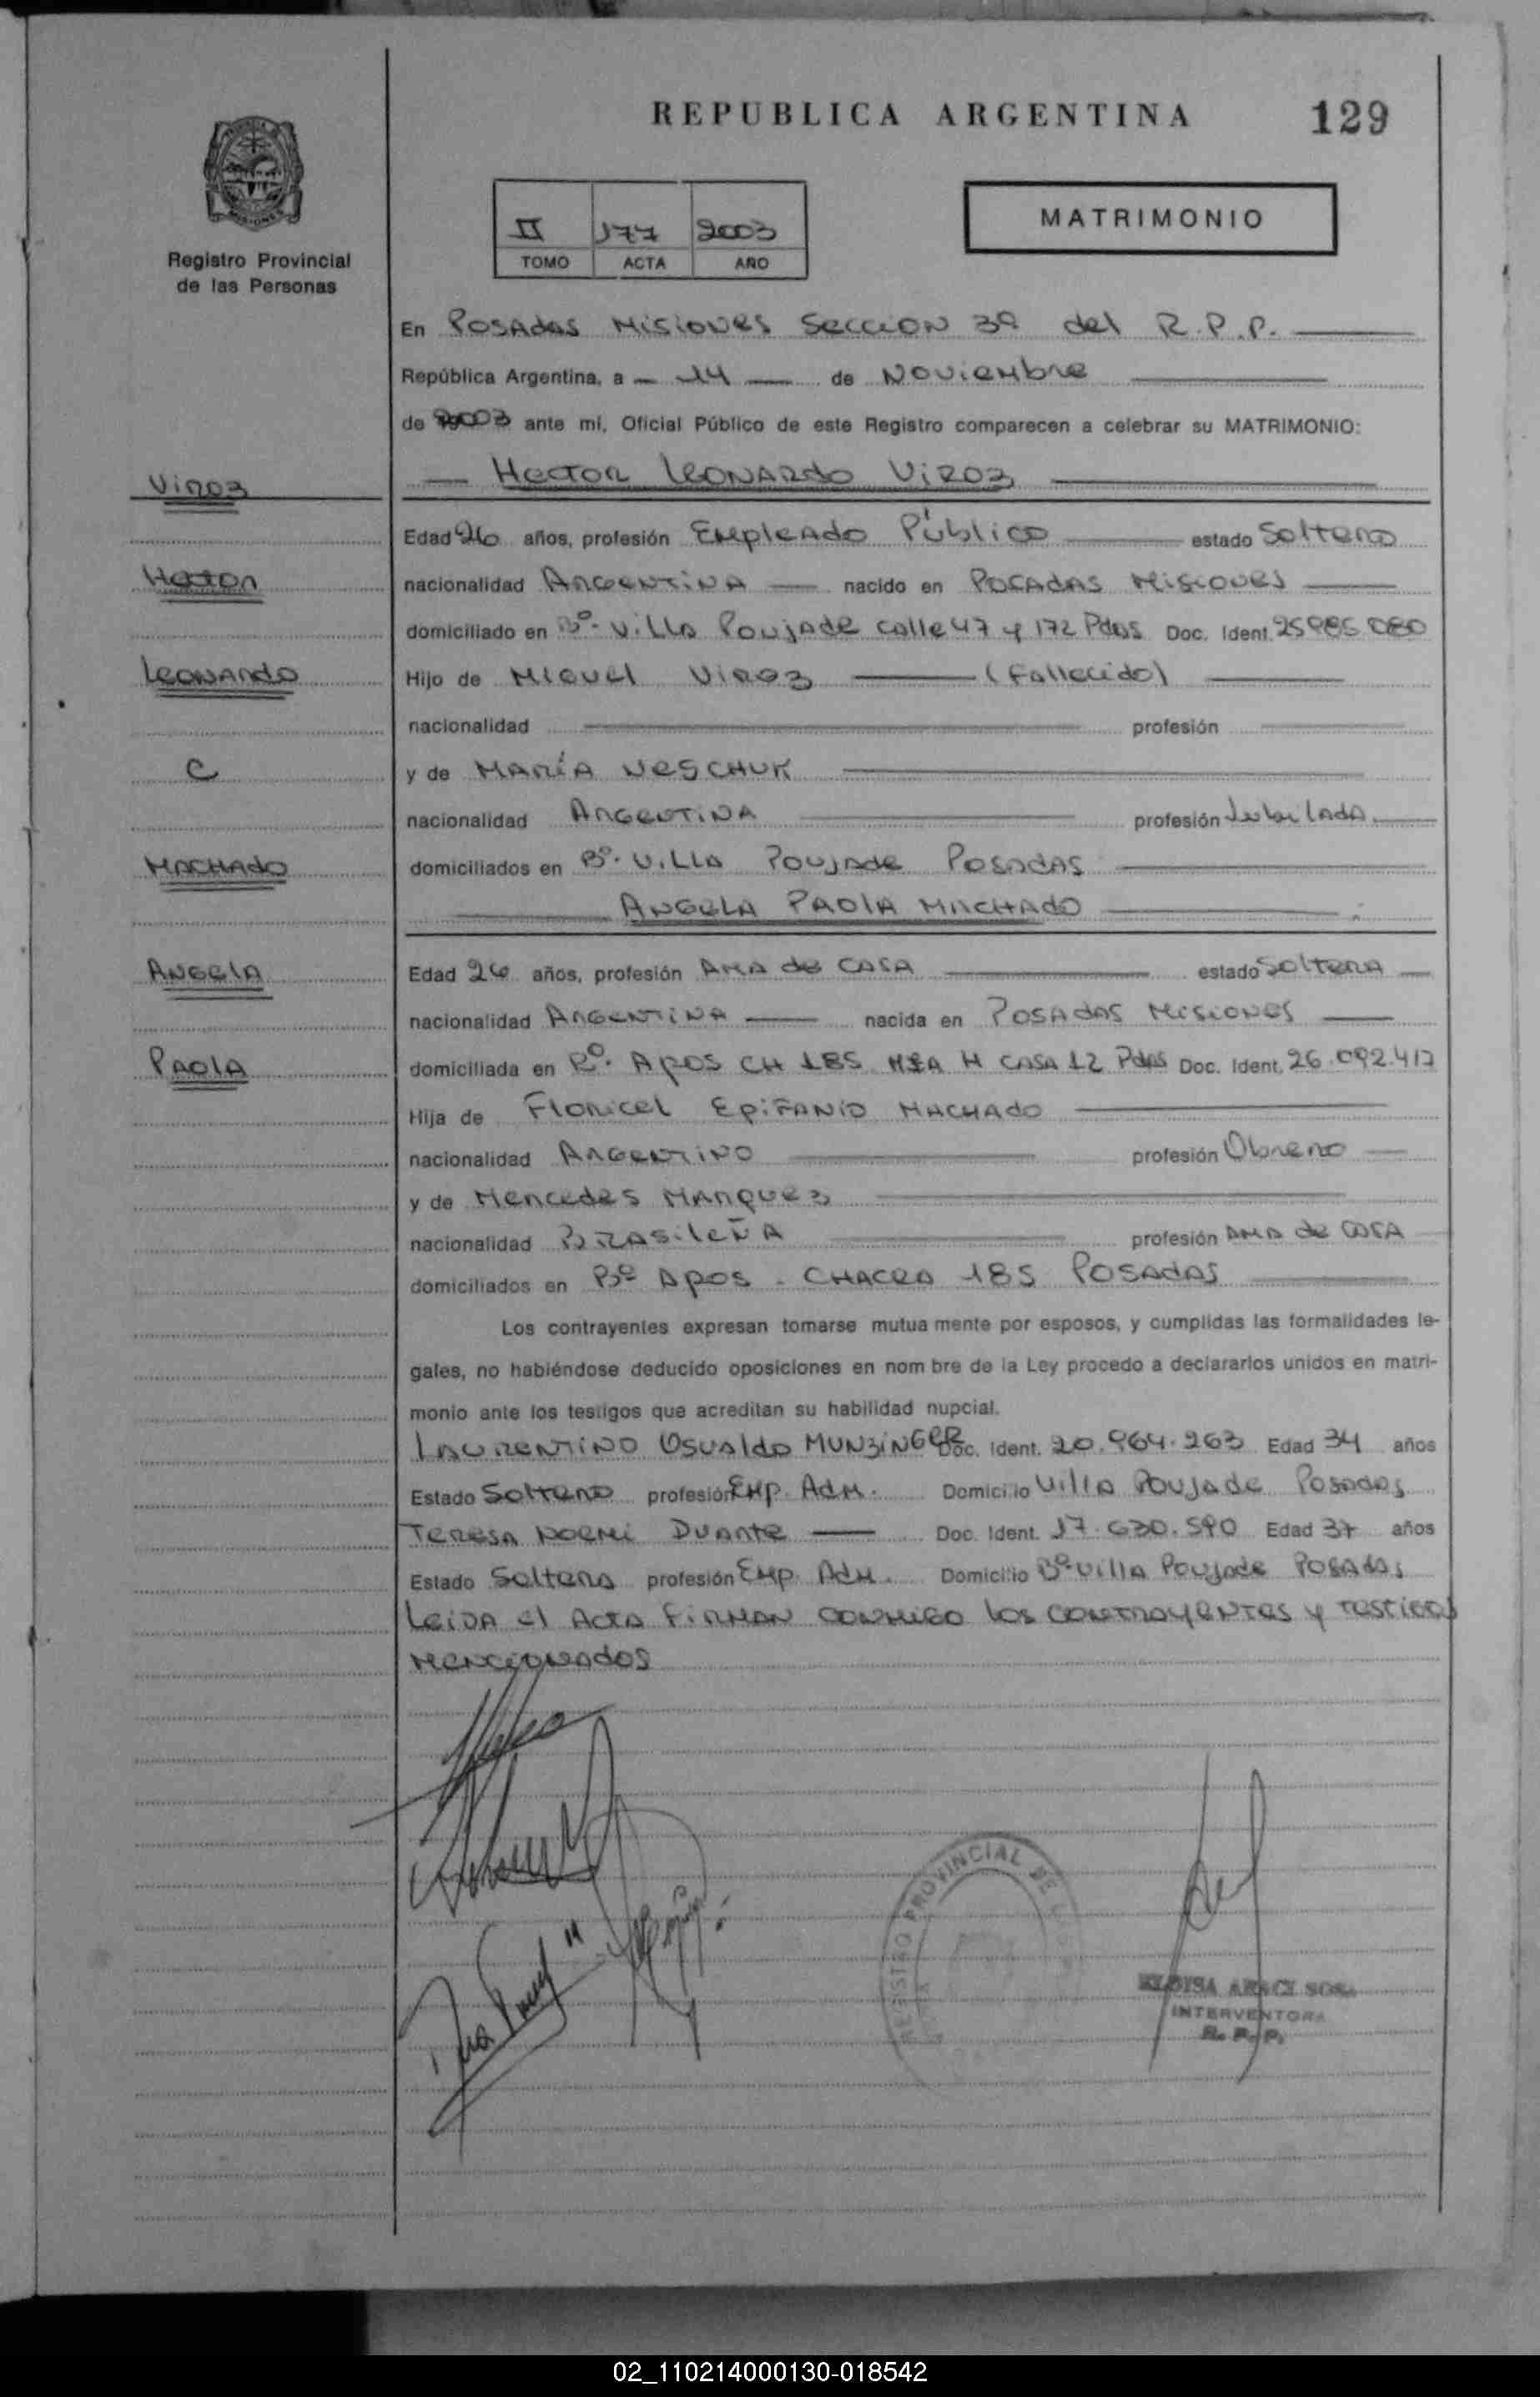 REPUBLICA ARGENTINA 129
II 177 2003
TOMO ACTA AÑO
MATRIMONIO
Registro Provincial
de las Personas
En Posadas Misiones Seccion 3ª del R.P.P.
República Argentina, a 14 de Noviembre
de 2003 ante mí, Oficial Público de este Registro comparecen a celebrar su MATRIMONIO:
Viroz
Hector Leonardo Viroz
Edad 26 años, profesión Empleado Público estado Soltero
Hector
nacionalidad Argentina nacido en Posadas Misiones
domiciliado en Bº. Villa Poujade calle 47 y 172 Pdas Doc. Ident. 25985080
Leonardo
Hijo de Miguel Viroz (Fallecido)
nacionalidad profesión
C
y de María Neschuk
nacionalidad Argentina profesión Jubilada.
Machado
domiciliados en Bº. Villa Poujade Posadas
Angela Paola Machado
Angela
Edad 26 años, profesión Ama de Casa estado Soltera
nacionalidad Argentina nacida en Posadas Misiones
Paola
domiciliada en Bº. Apos CH 185 MZA H Casa 12 Pdas Doc. Ident. 26.092.417
Hija de Floricel Epifanio Machado
nacionalidad Argentino profesión Obrero
y de Mercedes Marquez
nacionalidad Brasileña profesión Ama de Casa
domiciliados en Bº Apos - Chacra 185 Posadas
Los contrayentes expresan tomarse mutua mente por esposos, y cumplidas las formalidades le-
gales, no habiéndose deducido oposiciones en nom bre de la Ley procedo a declararlos unidos en matri-
monio ante los testigos que acreditan su habilidad nupcial.
Laurentino Osvaldo Munzinger Doc. Ident. 20.964.263 Edad 34 años
Estado Soltero profesión Emp. Adm. Domicilio Villa Poujade Posadas
Teresa Noemi Duarte Doc. Ident. 17.630.590 Edad 37 años
Estado Soltera profesión Emp. Adm. Domicilio Bº Villa Poujade Posadas
Leida el Acta Firman conmigo los contrayentes y testigos
mencionados
REGISTRO PROVINCIAL DE
ELOISA ARACI SOSA
INTERVENTORA
R. P. P.
02_110214000130-018542